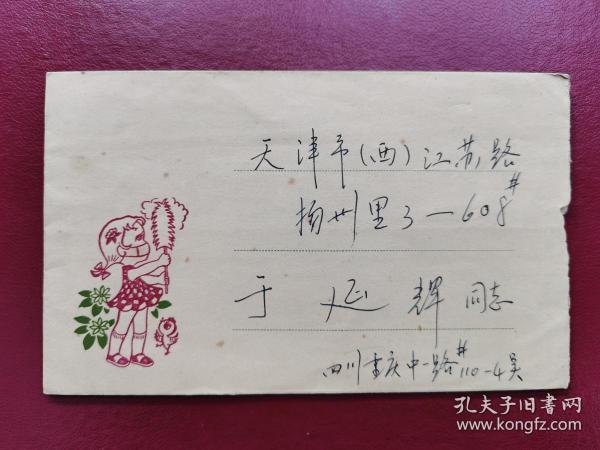 天津市(西)江苏路
扬州里3-608#
于延辉 同志
四川重庆中一路#110-4吴
孔夫子旧书网
www.kongfz.com